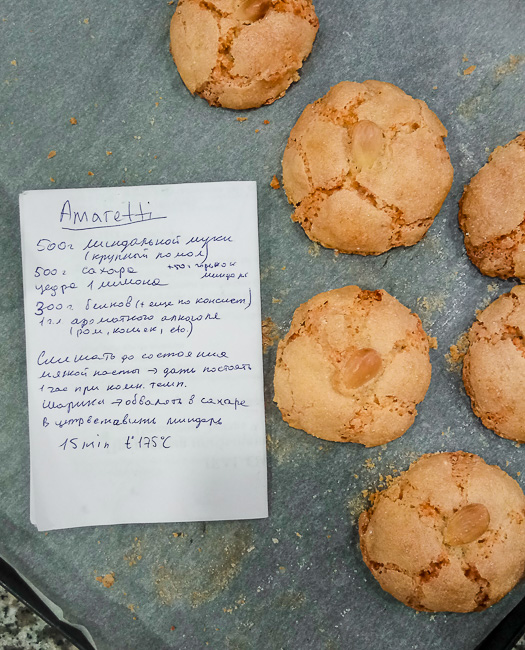 Amaretti
500г миндальной муки
(крупный помол)
500г сахара +50г горьког миндаля
цедра 1 лимона
300г белков (+ еще по консист)
1 ч.л ароматного алкоголя
(ром, коньяк, etc)
Смешать до состояния
мягкой пасты → дать постоять
1 час при комн. темп.
Шарики → обвалять в сахаре
в центр вставить миндаль
15 min t° 175°C